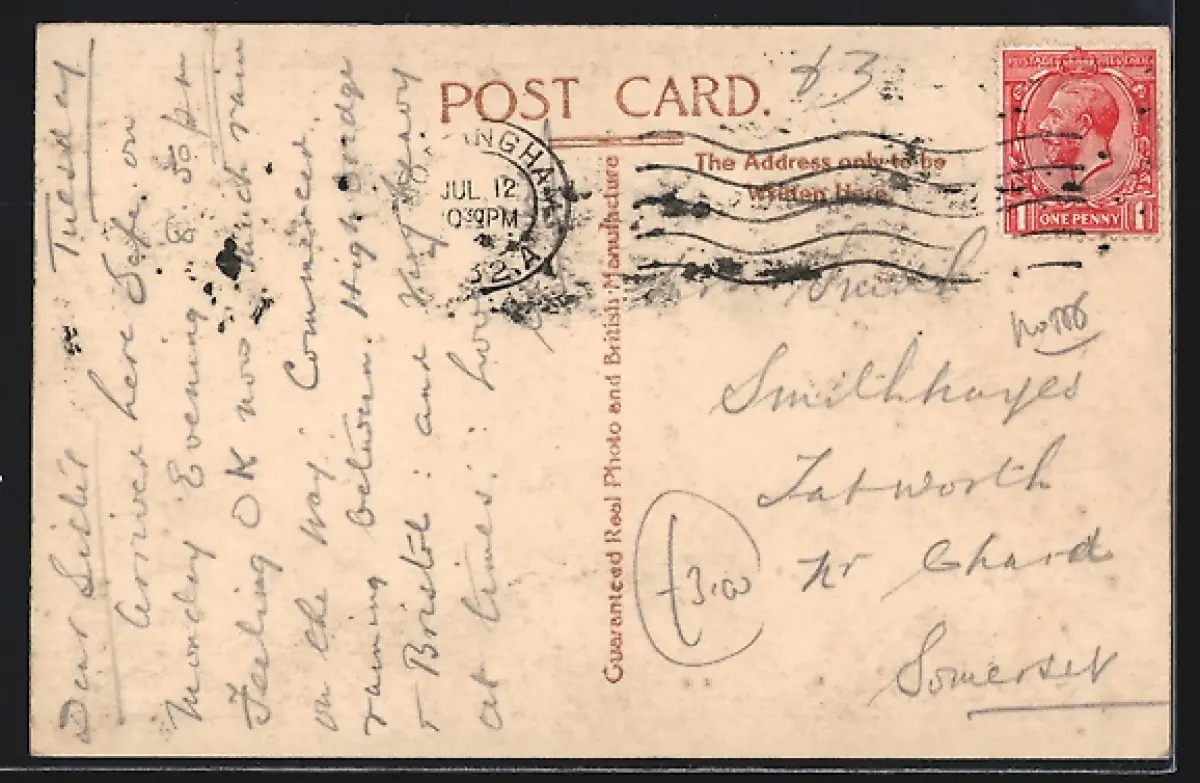 POST CARD.
The Address only to be
Written Here
Guaranteed Real Photo and British Manufacture
POSTAGE REVENUE
1 ONE PENNY 1
INGHAM
JUL 12
30 PM
32
A
83
Tuesday
Dear Sister
Arrived here Safe. on
Monday Evening 8.50 pm
Feeling OK now much rain
on the way. Commenced.
raining between. Highbridge
+ Bristol: and Very heavy
at times:
Smith
Smithhayes
Tatworth
nr Chard
Somerset
3.00